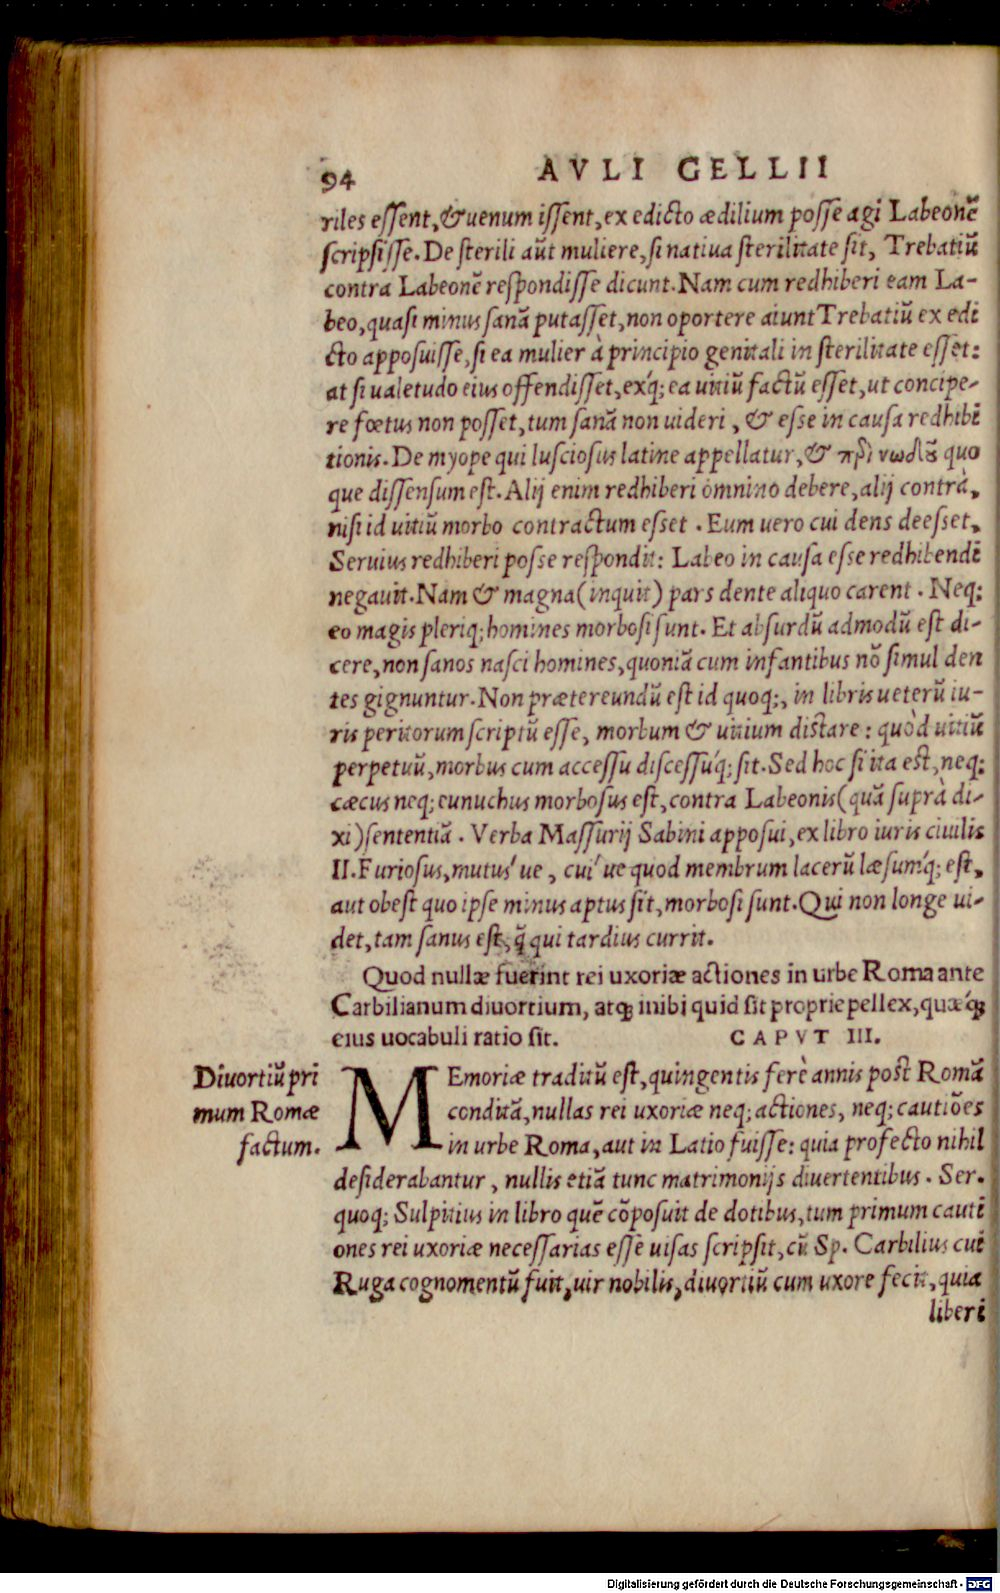 94 AVLI GELLII
riles essent, & uenum issent, ex edicto ædilium posse agi Labeonē
scripsisse. De sterili aūt muliere, si natiua sterilitate sit, Trebatiū
contra Labeonē respondisse dicunt. Nam cum redhiberi eam La-
beo, quasi minus sanā putasset, non oportere aiunt Trebatiū ex edi
cto apposuisse, si ea mulier à principio genitali in sterilitate esset:
at si ualetudo eius offendisset, exq́; ea uitiū factū esset, ut concipe-
re fœtus non posset, tum sanā non uideri, & esse in causa redhibi
tionis. De myope qui lusciosus latine appellatur, & quo
que dissensum est. Alij enim redhiberi omnino debere, alij contrà,
nisi id uitiū morbo contractum esset. Eum uero cui dens deesset,
Seruius redhiberi posse respondit: Labeo in causa esse redhibendi
negauit. Nam & magna (inquit) pars dente aliquo carent. Neq;
eo magis pleriq; homines morbosi sunt. Et absurdū admodū est di-
cere, non sanos nasci homines, quoniā cum infantibus nō simul den
tes gignuntur. Non prætereundū est id quoq;, in libris ueterū iu-
ris peritorum scriptū esse, morbum & uitium distare: quòd uitiū
perpetuū, morbus cum accessu discessúq; sit. Sed hoc si ita est, neq;
cæcus neq; eunuchus morbosus est, contra Labeonis (quā suprà di-
xi) sententiā. Verba Massurij Sabini apposui, ex libro iuris ciuilis
II. Furiosus, mutus´ue, cui´ue quod membrum lacerū læsumq́; est,
aut obest quo ipse minus aptus sit, morbosi sunt. Qui non longe ui-
det, tam sanus est, q̄ qui tardius currit.
Quod nullæ fuerint rei uxoriæ actiones in urbe Roma ante
Carbilianum diuortium, atq; inibi quid sit proprie pellex, quæq́;
eius uocabuli ratio sit. CAPVT III.
Diuortiū pri
mum Romæ
factum.
MEmoriæ traditū est, quingentis ferè annis post Romā
conditā, nullas rei uxoriæ neq; actiones, neq; cautiões
in urbe Roma, aut in Latio fuisse: quia profecto nihil
desiderabantur, nullis etiā tunc matrimonijs diuertentibus. Ser.
quoq; Sulpitius in libro quē cōposuit de dotibus, tum primum cauti
ones rei uxoriæ necessarias esse uisas scripsit, cū Sp. Carbilius cui
Ruga cognomentū fuit, uir nobilis, diuortiū cum uxore fecit, quia
liberi
Digitalisierung gefördert durch die Deutsche Forschungsgemeinschaft - DFG